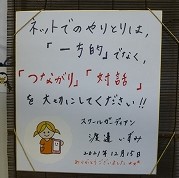 ネットでのやりとりは、
「一方的」でなく、
「つながり」「対話」
を大切にしてください!!
スクールガーディアン
渡邉 いずみ
2021年12月15日
ありがとうございました